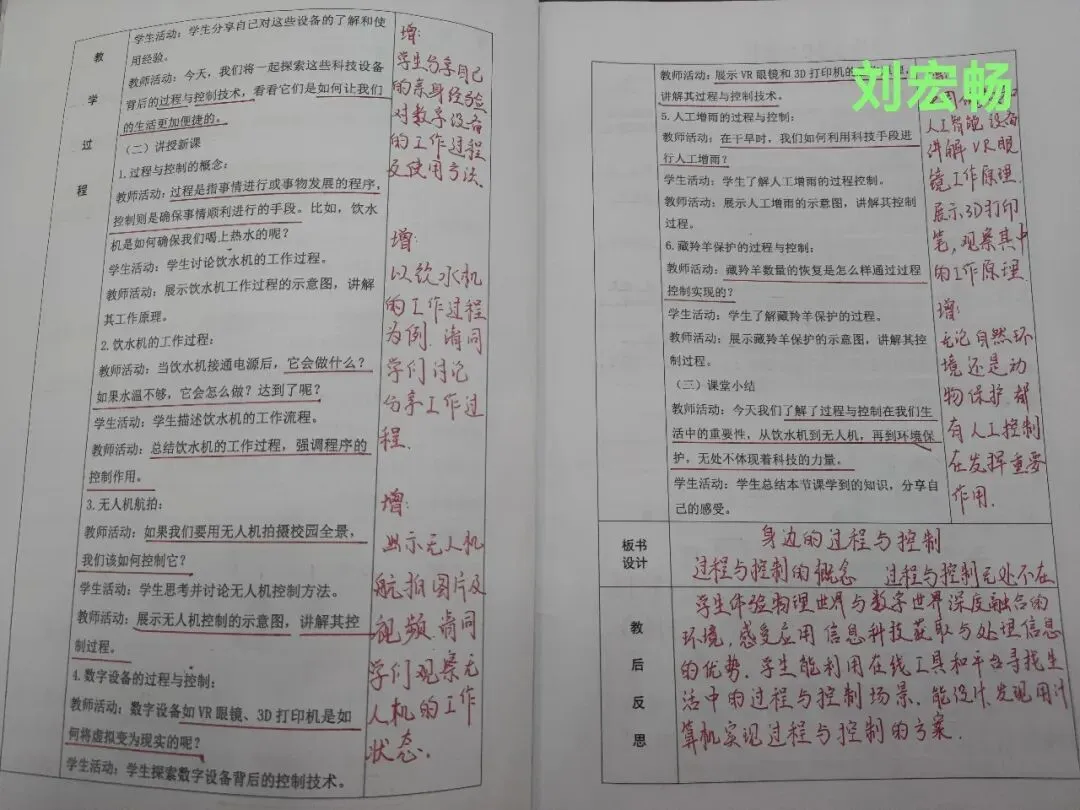 教
学
过
程
学生活动：学生分享自己对这些设备的了解和使
用经验。
教师活动：今天，我们将一起探索这些科技设备
背后的过程与控制技术，看看它们是如何让我们
的生活更加便捷的。
（二）讲授新课
1.过程与控制的概念：
教师活动：过程是指事情进行或事物发展的程序，
控制则是确保事情顺利进行的手段。比如，饮水
机是如何确保我们喝上热水的呢？
学生活动：学生讨论饮水机的工作过程。
教师活动：展示饮水机工作过程的示意图，讲解
其工作原理。
2.饮水机的工作过程：
教师活动：当饮水机接通电源后，它会做什么？
如果水温不够，它会怎么做？达到了呢？
学生活动：学生描述饮水机的工作流程。
教师活动：总结饮水机的工作过程，强调程序的
控制作用。
3.无人机航拍：
教师活动：如果我们要用无人机拍摄校园全景，
我们该如何控制它？
学生活动：学生思考并讨论无人机控制方法。
教师活动：展示无人机控制的示意图，讲解其控
制过程。
4.数字设备的过程与控制：
教师活动：数字设备如VR眼镜、3D打印机是如
何将虚拟变为现实的呢？
学生活动：学生探索数字设备背后的控制技术。
增：
学生分享自己
的亲身经验
对数字设备
的工作过程
及使用方法.
增：
以饮水机
的工作过程
为例.请同
学们讨论
分享工作过
程.
增：
出示无人机
航拍图片及
视频.请同
学们观察无
人机的工作
状态.
刘宏畅
教师活动：展示VR眼镜和3D打印机的
讲解其过程与控制技术。
5.人工增雨的过程与控制：
教师活动：在干旱时，我们如何利用科技手段进
行人工增雨？
学生活动：学生了解人工增雨的过程控制。
教师活动：展示人工增雨的示意图，讲解其控制
过程。
6.藏羚羊保护的过程与控制：
教师活动：藏羚羊数量的恢复是怎么样通过过程
控制实现的？
学生活动：学生了解藏羚羊保护的过程。
教师活动：展示藏羚羊保护的示意图，讲解其控
制过程。
（三）课堂小结
教师活动：今天我们了解了过程与控制在我们生
活中的重要性，从饮水机到无人机，再到环境保
护，无处不体现着科技的力量。
学生活动：学生总结本节课学到的知识，分享自
己的感受。
人工智能设备
讲解VR眼
镜工作原理.
展示3D打印
笔，观察其中
的工作原理.
增：
无论自然环
境还是动
物保护.都
有人工控制
在发挥重要
作用.
板书
设计
身边的过程与控制
过程与控制的概念 过程与控制无处不在
教
后
反
思
学生体验物理世界与数字世界深度融合的
环境，感受应用信息科技获取与处理信息
的优势.学生能利用在线工具和平台寻找生
活中的过程与控制场景.能设计.发现用计
算机实现过程与控制的方案.